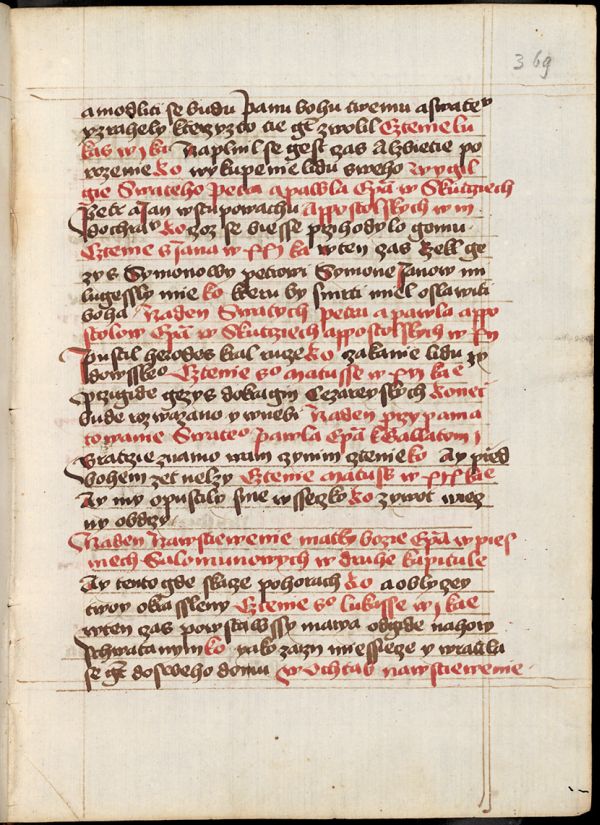 369
a modliti se budu Panu bohu twemu a swatey
yzrahely kteryzto tie gt zwolil Cztenie lu
kas w j ka Naplnil se gest czas Alzbietie po
rozenie ko wykupenie lidu sweho Wygil
gie Swateho Petra a pawla Epla w Skutciech
Petr a Jan wstupowachu Appostolskych w iij
do chramu ko zoz se biesse przihodylo gomu
Cztenie s Jana w xxj ka w ten czas Rzekl ge
zys Symonowy petrowi Symone Janow mi
lugessly mie ko kteru by smrti miel oslawiti
boha Na den Swatych petra a pawla appo
stolow Epla w Skutciech appostolskych w xij
Pustil herodes kral ruce ko zakanie lidu zy
dowskeo Cztenie so Matusse w xvj kae
Przigide gezys do kragin Cezarzeyskych konec
bude rozwazano y w nebi Na den przypama
towanie Swateo pawla Epla k Gallatom j
bratrzie znamo wam czynim cztenie ko Ay przed
bohem zet nelzy Cztenie Matuss w xix kae
Ay my opustily sme wsseczky ko zywot wiecz
ny obdrzy
Na den Nawstiewenie matky bozie Epla w pies
niech Salomunowych w druhe kapitule
Ay tento gde skacze po horach ko a oblyczey
twoy okrassleny Cztenie so lukasse w j kae
w ten czas powstawssy marya odgide na hory
s chwatanym ko yako za tri miesiece y wratila
se gt do sweho domu w Ochtab nawstiewenie